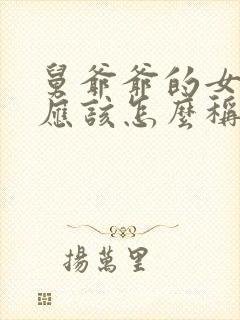 舅爺爺的女
應該怎麼稱
揚萬里